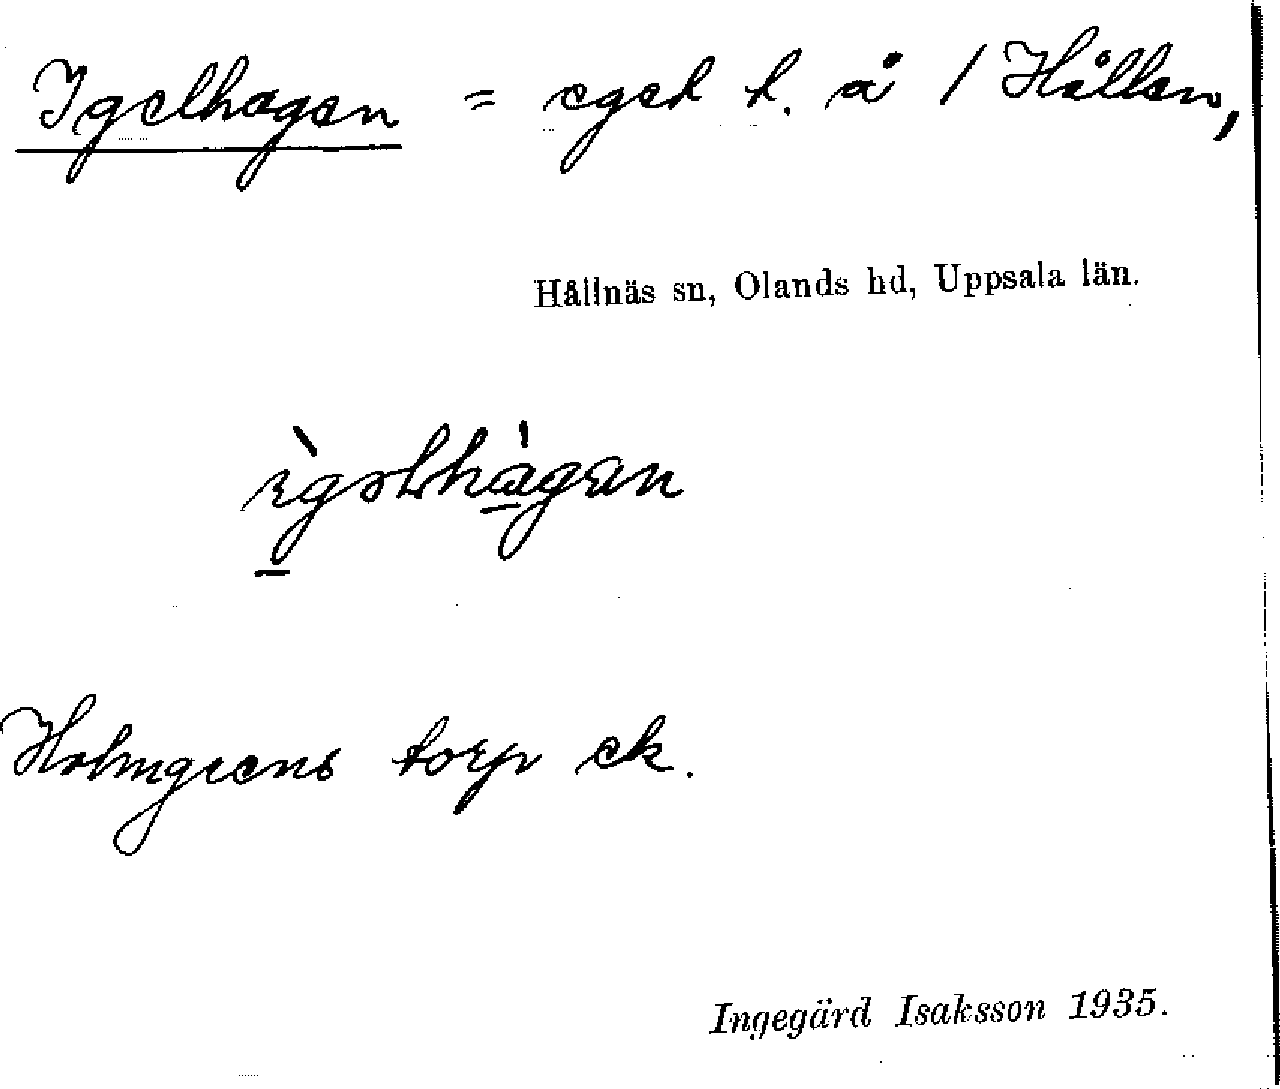 Igelhagen = eget t. å / Hållen,
Hållnäs sn, Olands hd, Uppsala län.
Holmgrens torp ek.
Ingegärd Isaksson 1935.